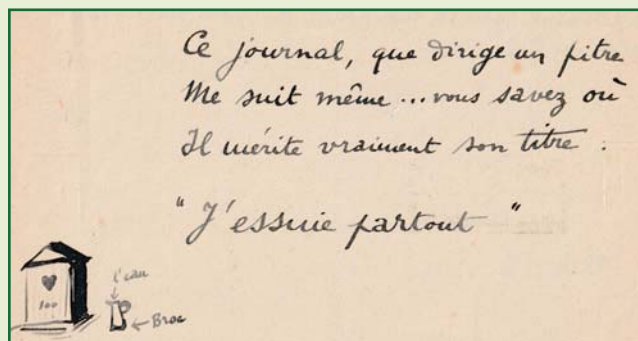 Ce journal, que dirige un pitre
Me suit même ... vous savez où
Il mérite vraiment son titre :
"J'essuie partout"
l'eau
100
← Broc